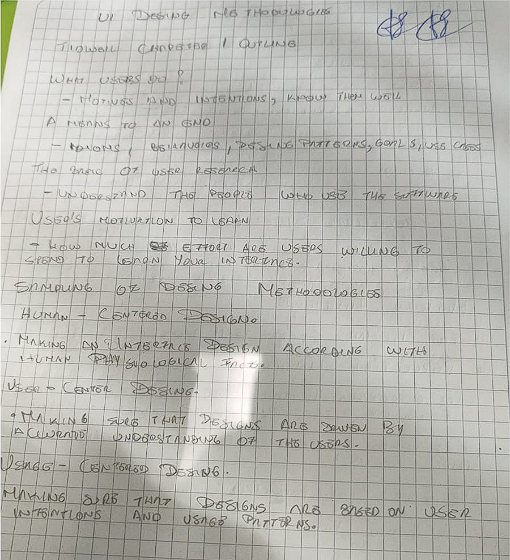 UI DESING METHODOLOGIES
TIDWELL CHAPTER 1 OUTLINE
WHAT USERS DO?
- MOTIVES AND INTENTIONS, KNOW THEM WELL
A MEANS TO AN END
- IDIOMS, BEHAVIORS, DESING PATTERNS, GOALS, USE CASES
THE BASIC OF USER RESEARCH
- UNDERSTAND THE PEOPLE WHO USE THE SOFTWARE
USER'S MOTIVATION TO LEARN
- HOW MUCH EFFORT ARE USERS WILLING TO
SPEND TO LEARN YOUR INTERFACE.
SAMPLING OF DESING METHODOLOGIES
HUMAN - CENTERED DESIGN.
. MAKING AN INTERFACE DESIGN ACCORDING WITH
HUMAN PHYSIOLOGICAL
USER - CENTER DESING.
MAKING SURE THAT DESIGNS ARE DRIVEN BY
ACCURATE UNDERSTANDING OF THE USERS.
USAGE - CENTERED DESING.
MAKING SURE THAT DESSIGNS ARE BASED ON USER
INTENTIONS AND USAGE PATTERNS.